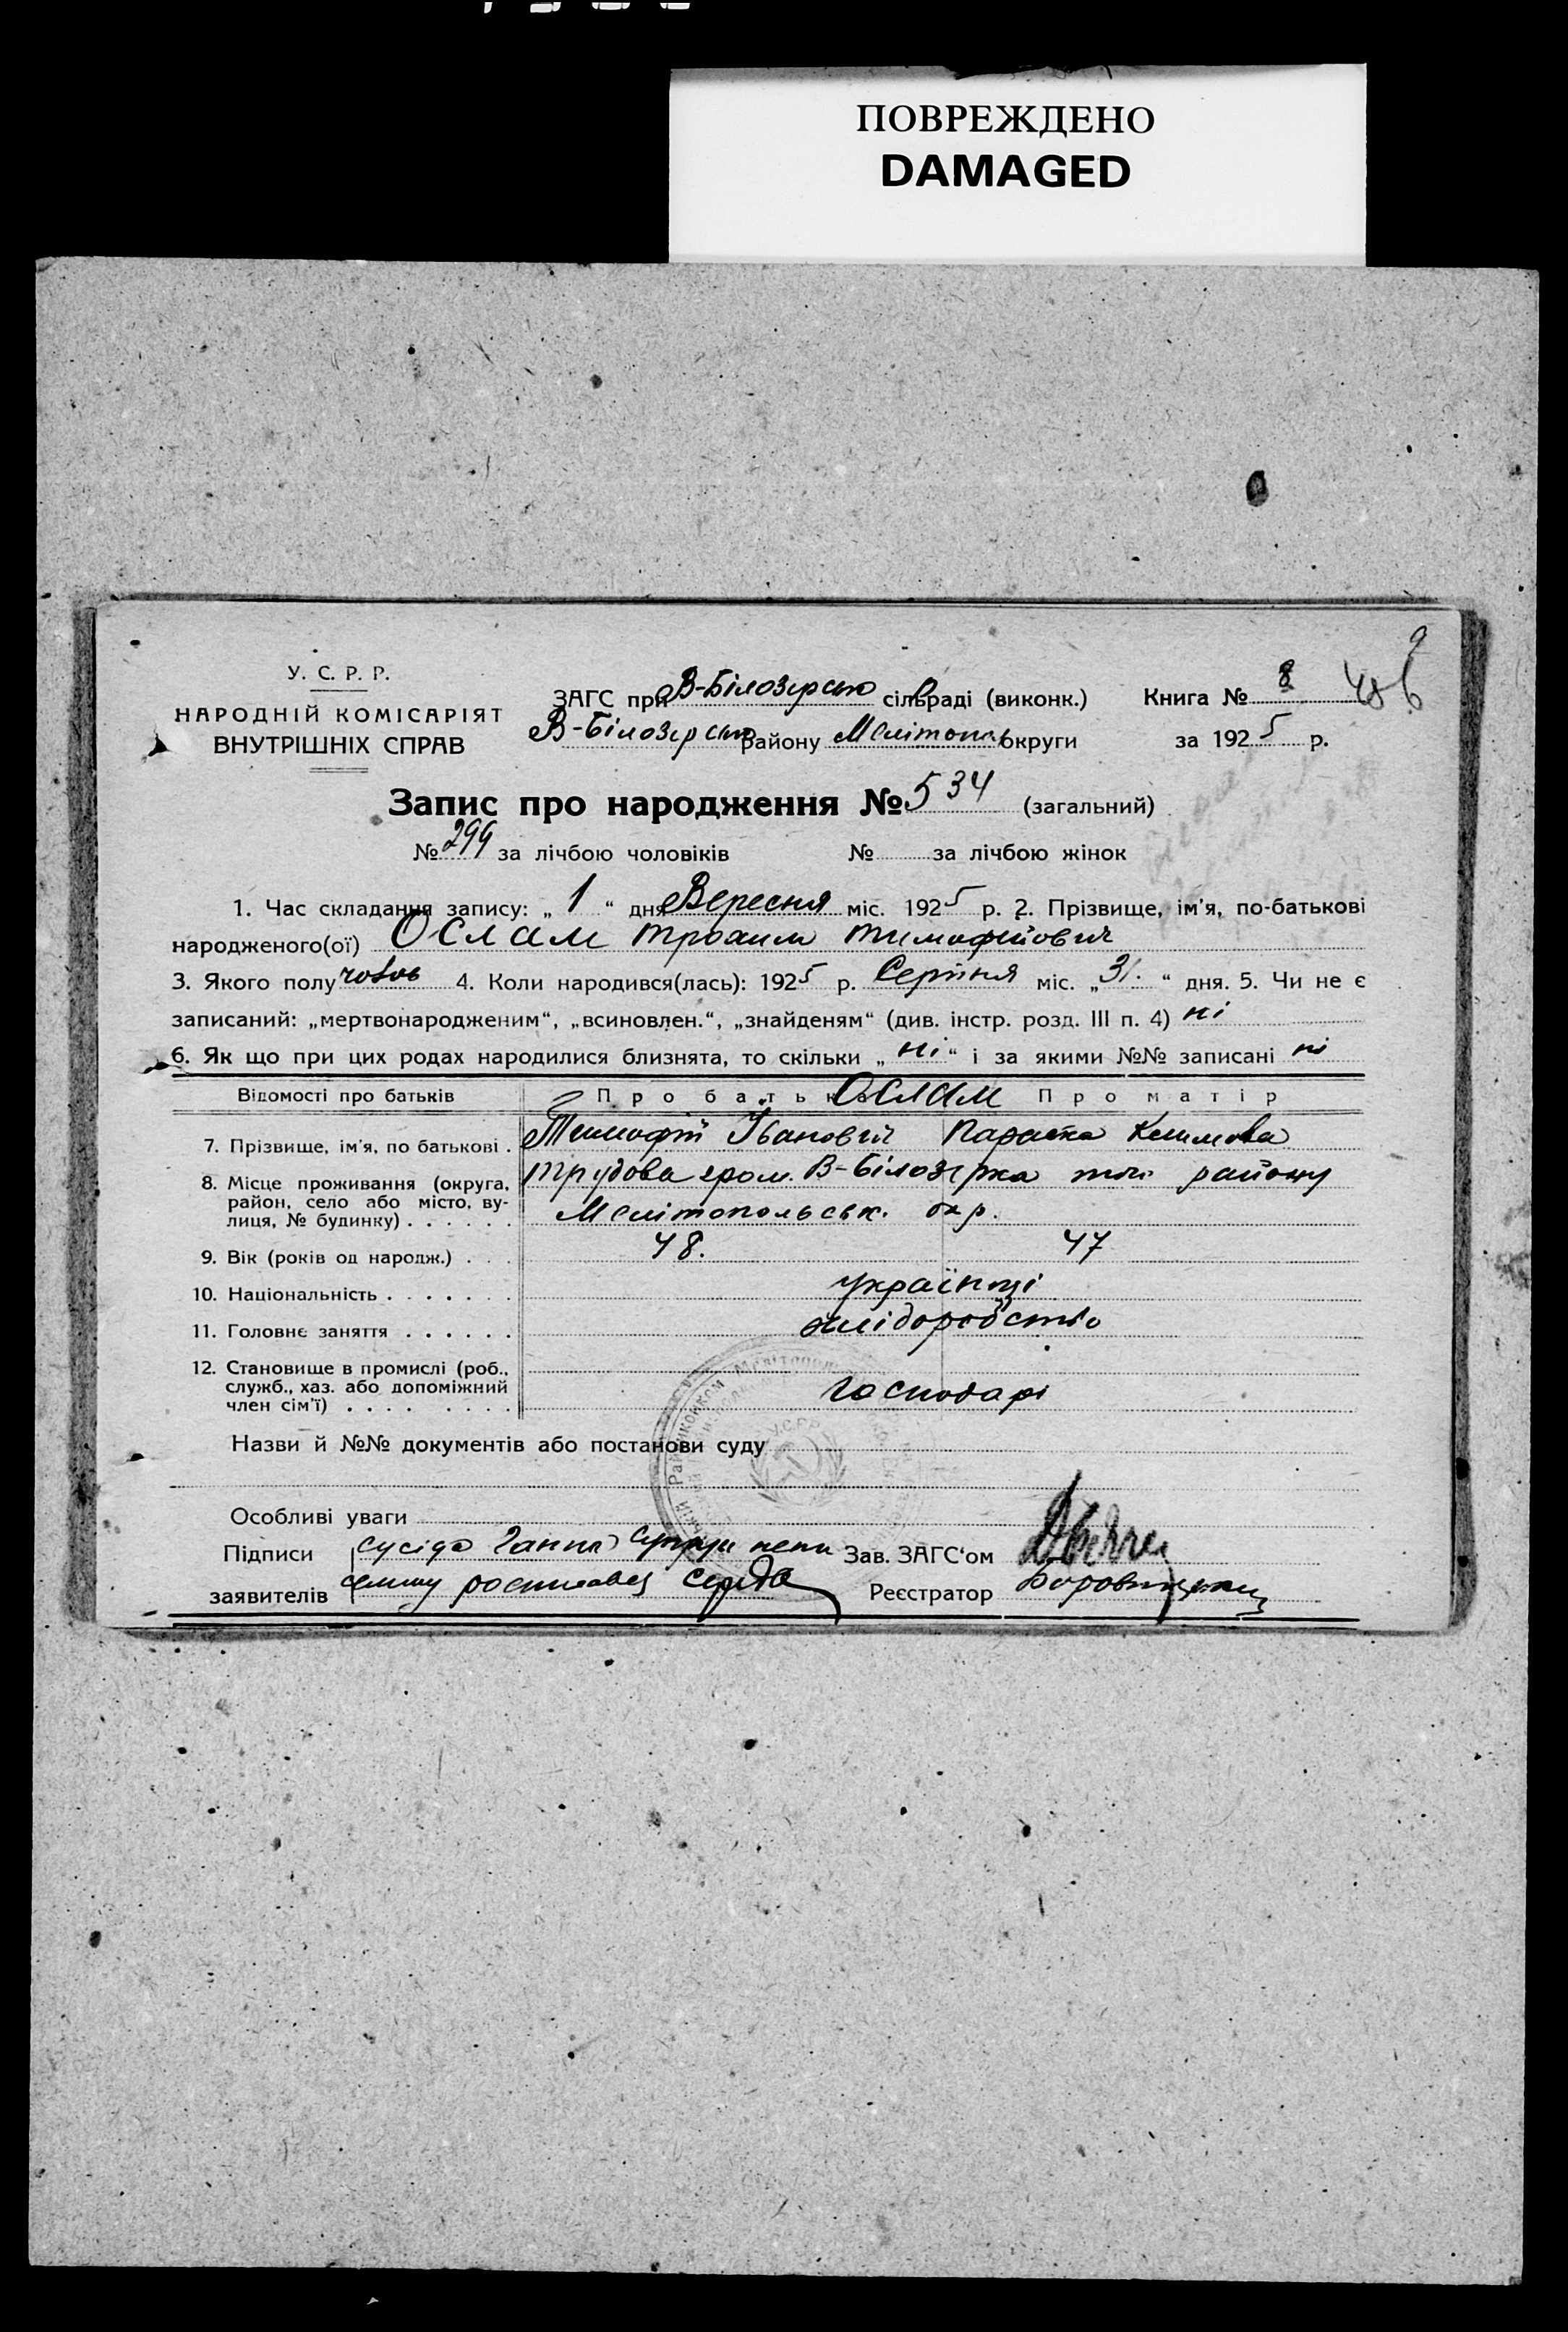 ПОВРЕЖДЕНО
DAMAGED
У. С. Р. Р.
НАРОДНІЙ КОМІСАРІЯТ
ВНУТРІШНІХ СПРАВ
ЗАГС при В-Білозерськ сільраді (виконк.) Книга № 8 486
В-Білозерськ району Мелітополь округи за 1925 р.
Запис про народження № 534 (загальний)
№ 299 за лічбою чоловіків № за лічбою жінок
1. Час складання запису: „ 1 “ дня Вересня міс. 1925 р. 2. Прізвище, ім'я, по-батькові
народженого(ої) Ослам Трохим Тимофійович
3. Якого полу чолов 4. Коли народився(лась): 1925 р. Серпня міс. „ 31. “ дня. 5. Чи не є
записаний: „мертвонародженим“, „всиновлен.“, „знайденям“ (див. інстр. розд. III п. 4) ні
6. Як що при цих родах народилися близнята, то скільки „ ні “ і за якими №№ записані ні
Відомості про батьків Про батька Ослам Про матір
7. Прізвище, ім'я, по батькові . Тимофій Іванович Параска Климова
8. Місце проживання (округа, район, село або місто, вулиця, № будинку) . . . . . . Трудова гром. В-Білозерка району
Мелітопольськ. окр.
9. Вік (років од народж.) . . . 48. 47
10. Національність . . . . . . . українці
11. Головне заняття . . . . . . хліборобство
12. Становище в промислі (роб.,
служб., хаз. або допоміжний
член сім'ї) . . . . . . . . господарі
Назви й №№ документів або постанови суду
Особливі уваги
Підписи сусіда Ганна Зав. ЗАГС'ом
заявителів Середа Реєстратор